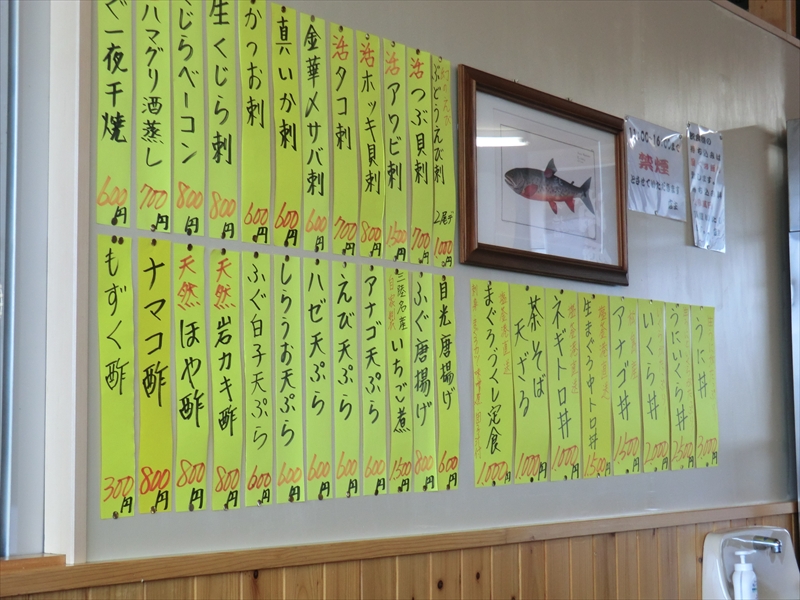 ぶどうえび刺 2尾デ 1000円
活つぶ貝刺 700円
活アワビ刺 1500円
活ホッキ貝刺 800円
活タコ刺 700円
金華〆サバ刺 600円
真いか刺 600円
かつお刺 600円
生くじら刺 800円
くじらベーコン 800円
ハマグリ酒蒸し 700円
ぐ一夜干焼 600円
目光唐揚げ 600円
ふぐ唐揚げ 800円
三陸名産 いちご煮 1500円
アナゴ天ぷら 600円
えび天ぷら 600円
ハゼ天ぷら 600円
しらうお天ぷら 600円
ふぐ白子天ぷら 600円
天然岩カキ酢 800円
天然ほや酢 800円
ナマコ酢 800円
もずく酢 300円
うに丼 3000円
うにいくら丼 2500円
いくら丼 2000円
アナゴ丼 1500円
生まぐろ中トロ丼 1500円
ネギトロ丼 1000円
茶そば天ざる 1000円
まぐろづくし定食 1000円
禁煙
とさせて頂きます
店主